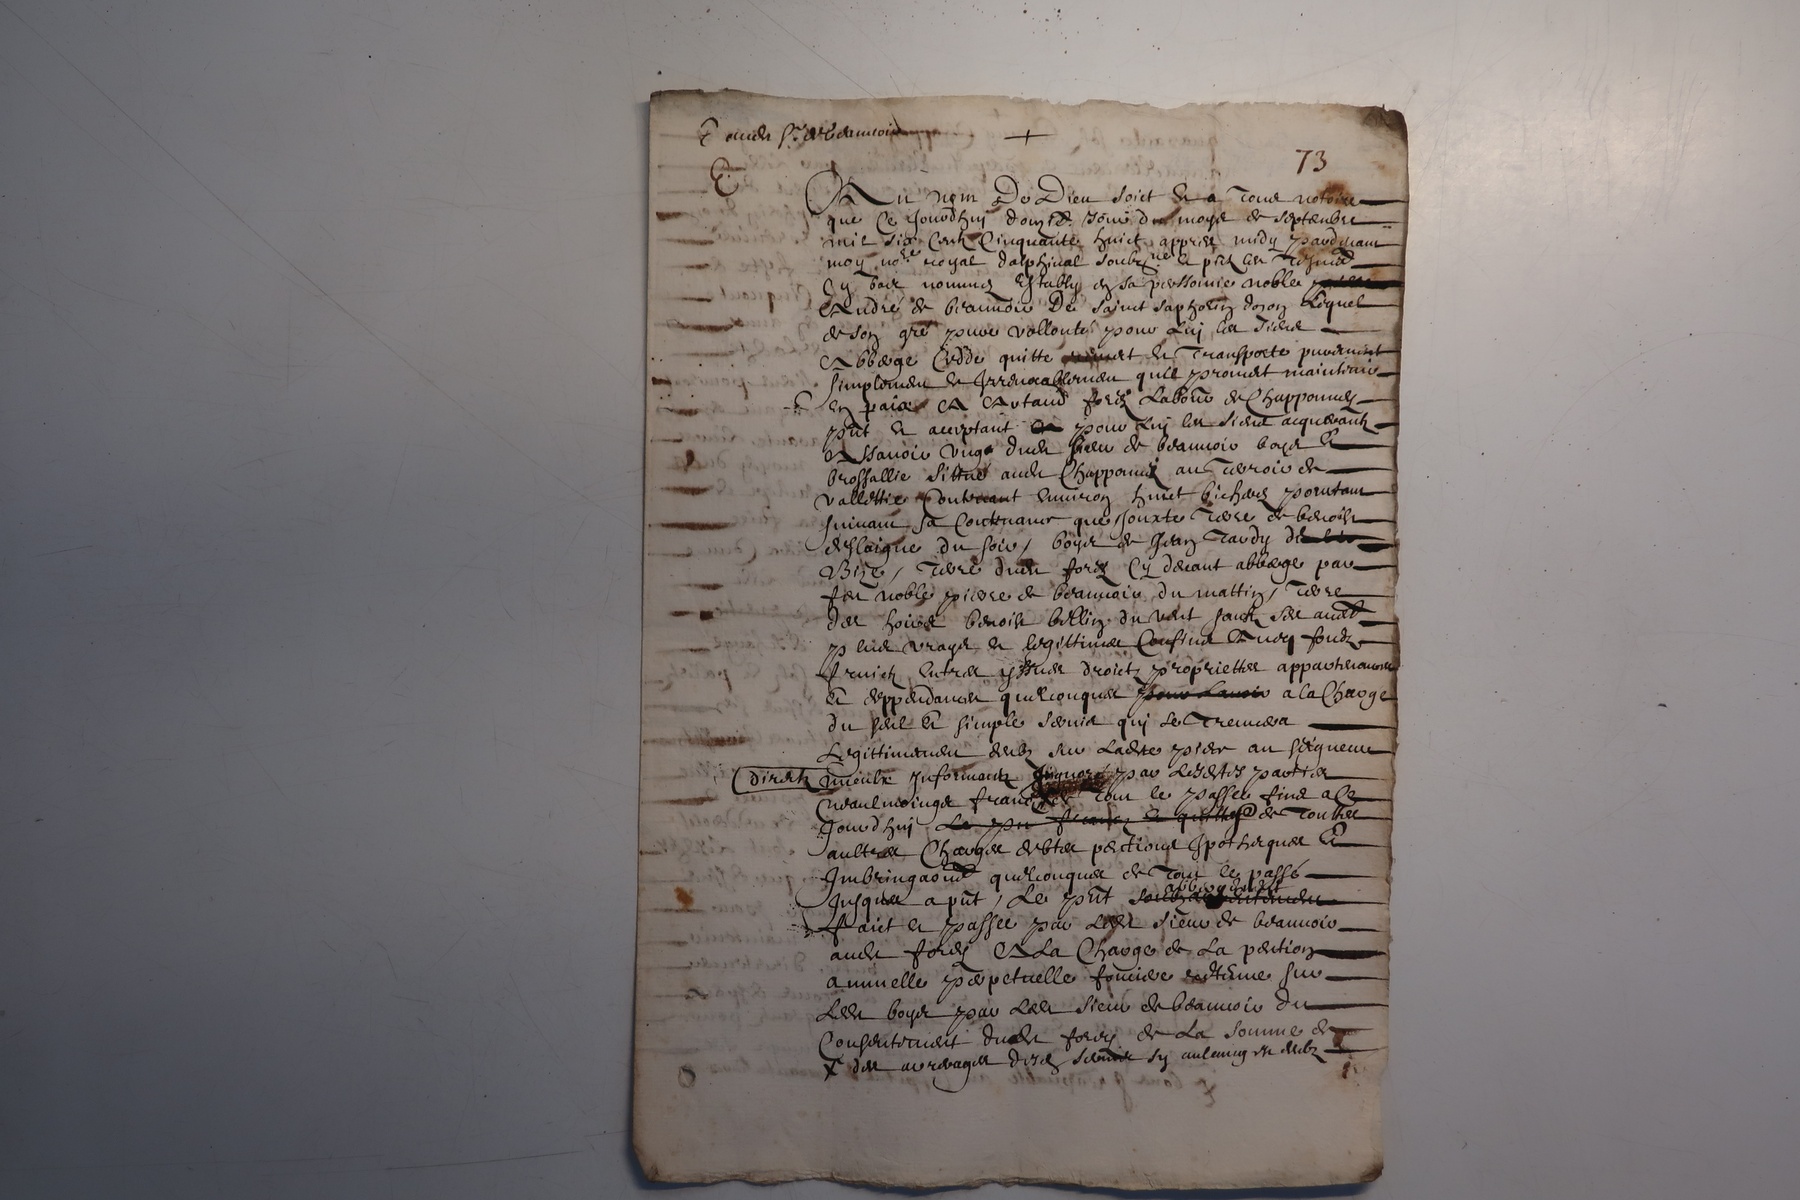 E audit Sr de beauvoir
73
E
Au nom De Dieu soict et a tous notoire
que Ce jourdhuy douzie jour du moys de septembre
mil six Cent Cinquante huict appres midy pardevant
moy nore royal dalphinal soubzne et pntz les tesmoins
Cy bas nommes Estably en sa personne noble
André de beauvoir De sainct saphorin dozon lequel
de son gré pure vollonté pour luy les siens
Abberge Cedde quitte remet et Transporte purement
simplement et Irrevocablement quil promet maintenir
en paix A Artaud forez Labour de Chapponnay
pnt et acceptant pour luy les siens acquerantz
Assavoir ung dudt sieur de beauvoir boys et
brossallie sittue audit Chapponnay au Terroir de
vallettie Contenant Environ huict bicherées pourtant
suivant sa Contenance que jouxte Terre de benoist
du soir, boys de Jean Tardy de
Bize, Terre dudt forez Cy devant abbergé par
feu noble pierre de beauvoir du mattin, Terre
des hoirs benoist bellin du vent sauf ses aultres
plus vrays et legittimes Confins Avec fondz
fruictz entrees yssues droictz proprietes appartenances
et deppendances quelconques pour Lavoir a la Charge
du seul et simple servis qui se Treuvera
Legittimement deub sur Ladite piece au seigneur
direct Informentz Ignoré par Lesdites parties
neaulmoings franc de tout le passé fins a Ce
jourdhuy et quitte de touttes
aultres Charges debtes pentions hypotheques et
Imbringations quelconques de Tout le passé
jusques a pnt, Le pnt abbergement
faict et passé par Ledt sieur de beauvoir
audt forez A La Charge de La pention
annuelle perpetuelle fonciere sur
Ledt boys par Ledt sieur de beauvoir du
Consentement dudt forez de La somme de
X des arreyrages desd servis sy aulcung en deubz